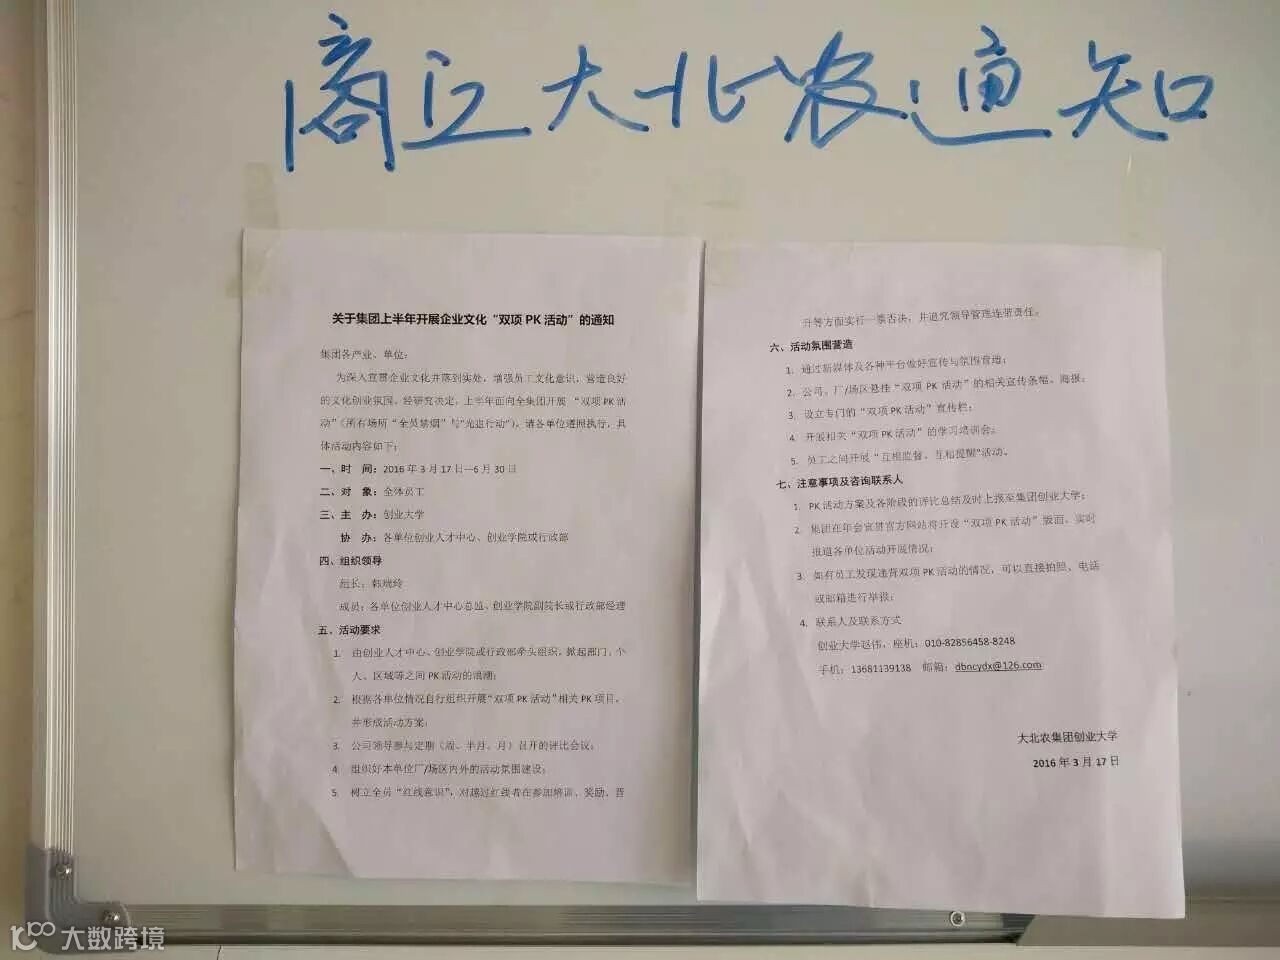 商丘大北农通知
关于集团上半年开展企业文化“双项 PK 活动”的通知
集团各产业、单位：
为深入宣贯企业文化并落到实处，增强员工文化意识，营造良好
的文化创业氛围，经研究决定，上半年面向全集团开展 “双项 PK 活
动”（所有场所“全员禁烟”与“光盘行动”），请各单位遵照执行，具
体活动内容如下：
一、时　间：2016 年 3 月 17 日—6 月 30 日
二、对　象：全体员工
三、主　办：创业大学
协　办：各单位创业人才中心、创业学院或行政部
四、组织领导
组长：韩晓玲
成员：各单位创业人才中心总监、创业学院副院长或行政部经理
五、活动要求
1. 由创业人才中心、创业学院或行政部牵头组织，掀起部门、个
人、区域等之间 PK 活动的浪潮；
2. 根据各单位情况自行组织开展“双项 PK 活动”相关 PK 项目，
并形成活动方案；
3. 公司领导参与定期（周、半月、月）召开的评比会议；
4. 组织好本单位厂/场区内外的活动氛围建设；
5. 树立全员“红线意识”，对越过红线者在参加培训、奖励、晋
升等方面实行一票否决，并追究领导管理连带责任。
六、活动氛围营造
1. 通过新媒体及各种平台做好宣传与氛围营造；
2. 公司、厂/场区悬挂“双项 PK 活动”的相关宣传条幅、海报；
3. 设立专门的“双项 PK 活动”宣传栏；
4. 开展相关“双项 PK 活动”的学习培训会；
5. 员工之间开展“互相监督、互相提醒”活动。
七、注意事项及咨询联系人
1. PK 活动方案及各阶段的评比总结及时上报至集团创业大学；
2. 集团在年会宣贯官方网站将开设“双项 PK 活动”版面，实时
报道各单位活动开展情况；
3. 如有员工发现违背双项 PK 活动的情况，可以直接拍照、电话
或邮箱进行举报；
4. 联系人及联系方式
创业大学赵伟，座机：010-82856458-8248
手机：13681139138　邮箱：dbncydx@126.com
大北农集团创业大学
2016 年 3 月 17 日
大数跨境